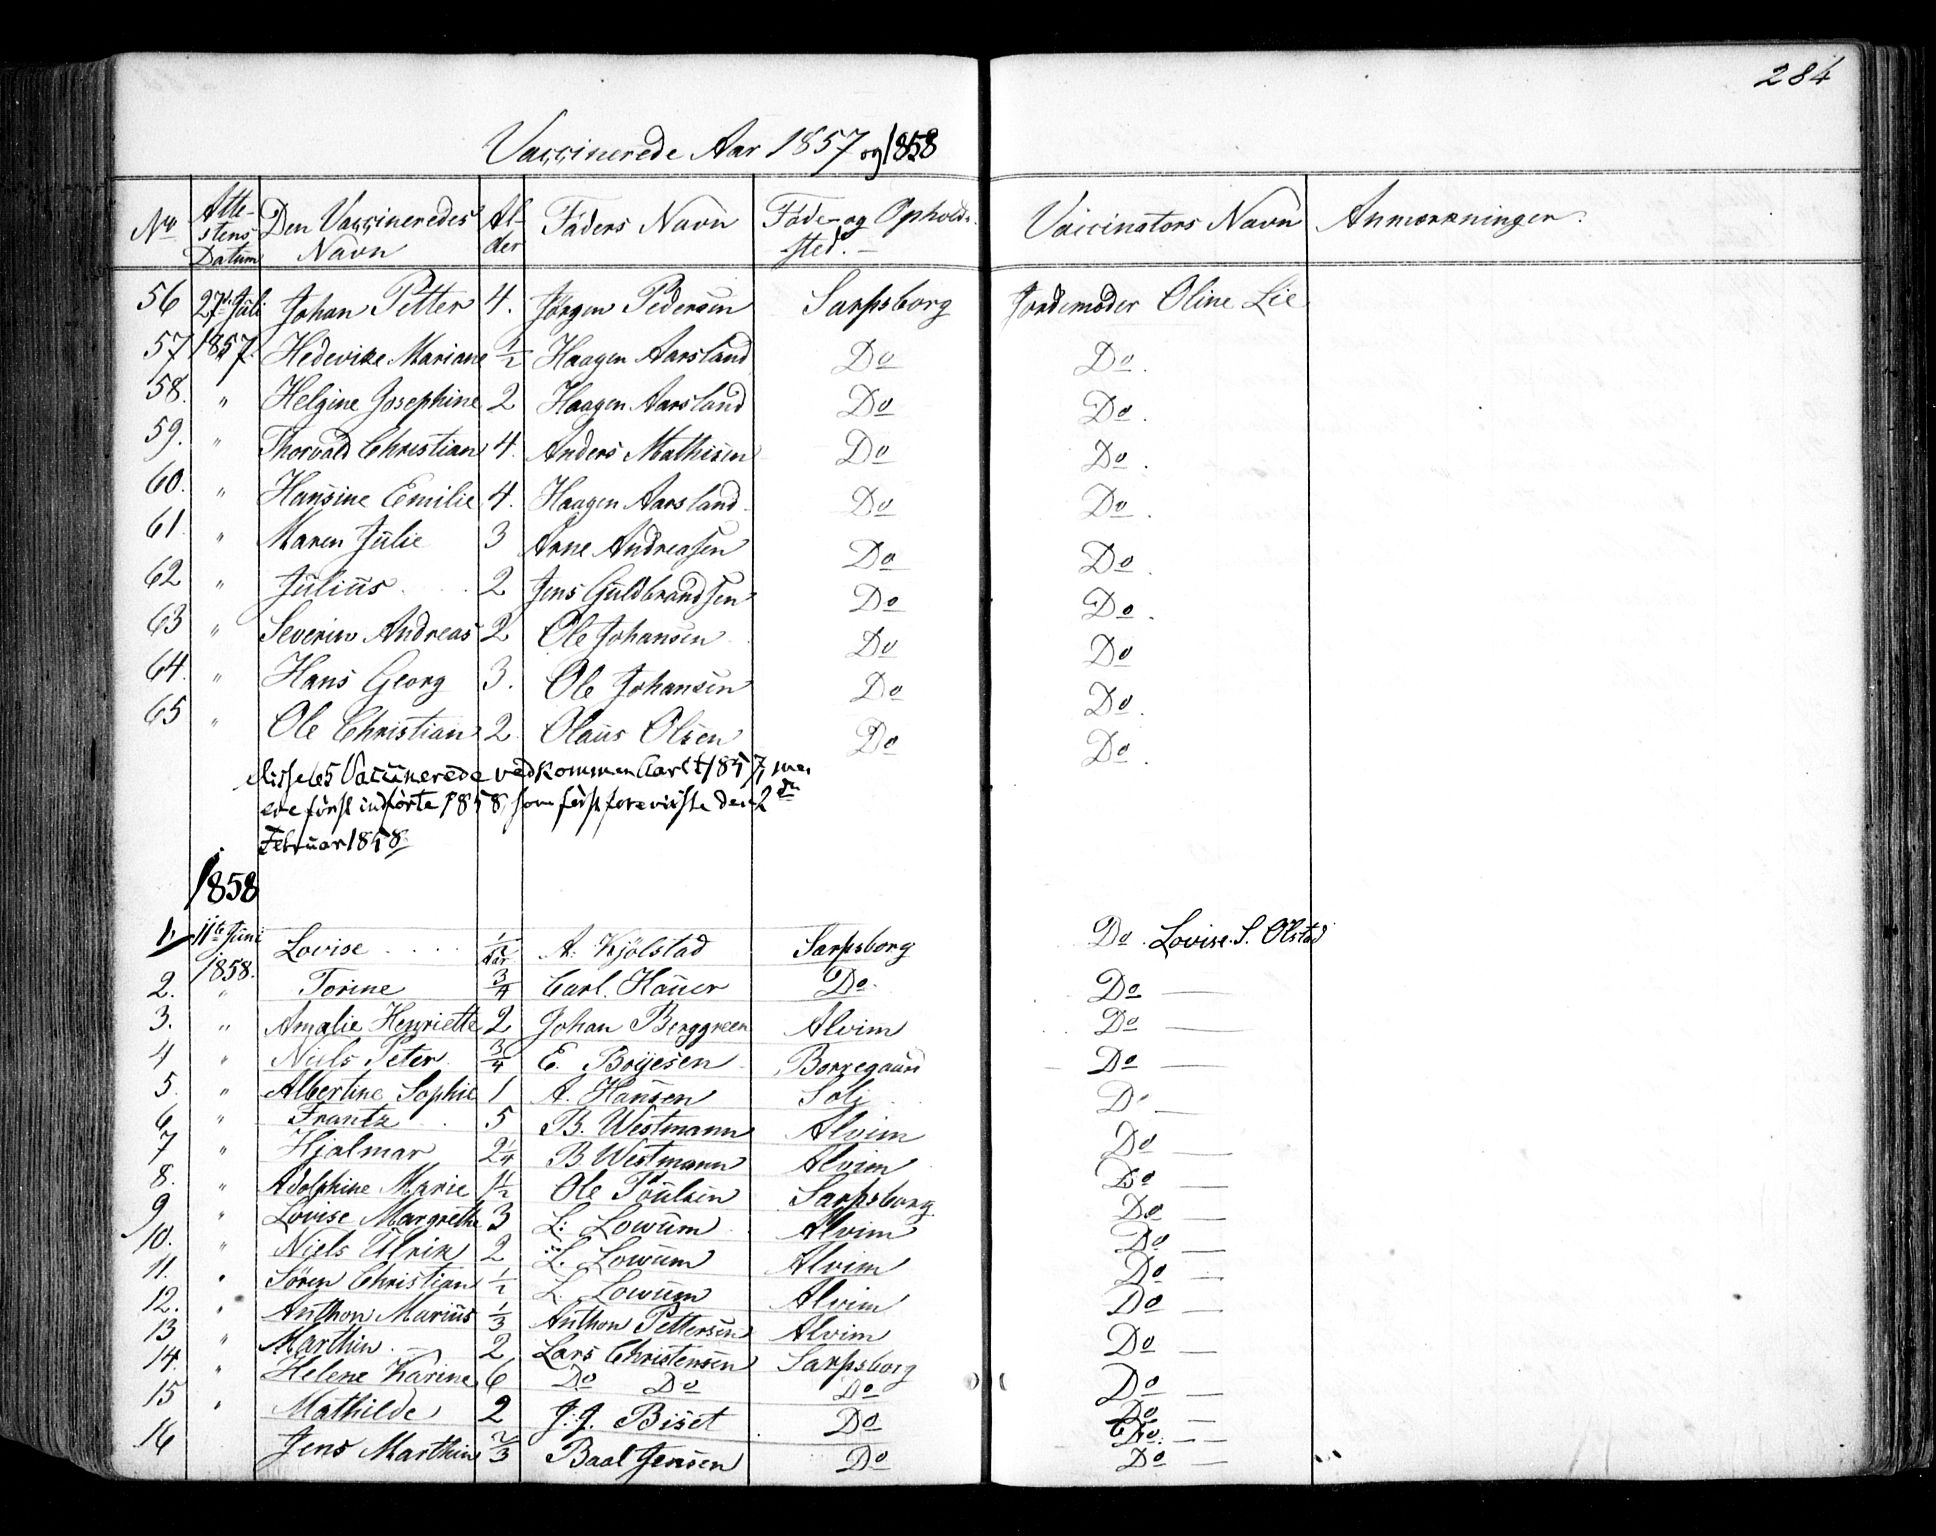 284
Vaccinerede Aar 1857 og 1858
No Attestens Datum Den Vaccineredes Navn Alder Faders Navn Føde- og Opholdssted. Vaccinators Navn Anmærkninger.
56 27de Juli Johan Petter 4. Jörgen Pedersen Sarpsborg Jordemoder Oline Lie
57 1857. Hedevike Mariane 1/2 Haagen Aarsland Do Do.
58. " Helgine Josephine 2 Haagen Aarsland Do Do.
59. " Thorvald Christian 4. Anders Mathisen Do Do.
60. " Hansine Emilie 4. Haagen Aarsland. Do Do.
61. " Maren Julie 3 Arne Andreasen Do Do.
62 " Julius 2 Jens Guldbrandsen Do Do.
63 " Severin Andreas 2 Ole Johansen Do Do
64. " Hans Georg 3. Ole Johansen Do Do.
65 " Ole Christian 2 Olaus Olsen Do Do.
disse 65 Vaccinerede vedkommen Aaret 1857, men
ere först indförte 1858, som först foreviiste den 2den
Februar 1858.
1858
1. 11te Juni Lovise 1/2 Aar A. Kjölstad Sarpsborg Do. Lovise S. Olstad
2. 1858. " Torine 3/4 Carl. Hauer Do. Do —
3. " Amalie Henriette 2 Johan Berggreen Alvim Do —
4 " Niels Peter 3/4 E. Boyesen Borregaard Do —
5. " Albertine Sophie 1 A. Hansen Soli Do —
6 " Frantz 5 B. Westmann Alvim Do —
7 " Hjalmar 2 1/4 B Westmann Alvim Do —
8. " Adolphine Marie 1 1/2 Ole Poulsen Sarpsborg Do —
9 " Lovise Margrethe 3 L: Lowum Alvim Do —
10. " Niels Ulrik 2 L. Lowum Alvim Do —
11. " Sören Christian 1/2 L. Lowum Alvim Do —
12. " Anthon Marius 1/3 Anthon Pettersen Alvim Do —
13 " Marthin 2 Lars Christensen Sarpsborg Do —
14. " Helene Karine 6 Do Do Do Do —
15 " Mathilde 2 J. J. Biset Do Do. —
16 Jens Marthin 2/3 Baal Jensen Do Do —